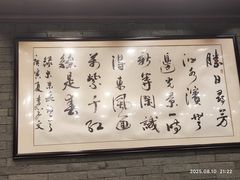 勝日尋芳
泗水濱無
邊光景一時
新等閒識
得東風面
萬紫千紅
總是春
庚寅夏
2025.08.10 21:22